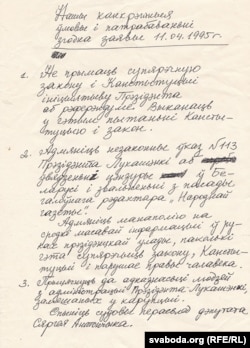 Нашы канкрэтныя
ўмовы і патрабаваньні
згодна заявы 11.04.1995 г.
1. Не прымаць супярэчную
закону і Канстытуцыі
ініцыятыву Прэзідэнта
аб рэферэндуме. Выканаць
у гэтым пытаньні Кансты-
туцыю і закон.
2. Адмяніць незаконны ўказ N 113
Прэзідэнта Лукашэнкі аб
цэнзуры ў Бе-
ларусі і звальненьні з пасады
галоўнага рэдактара „Народнай
газеты".
Адмяніць манаполію на
сродкі масавай інфармацыі ў ру-
ках прэзідэнцкай улады, паколькі
гэта супярэчыць закону, Кансты-
туцыі і парушае правы чалавека.
3. Прыцягнуць да адказнасці людзей
з адміністрацыі Прэзідэнта Лукашэнкі,
западозраных у карупцыі.
Спыніць судовы перасьлед дэпутата
Сяргея Антончыка.
svaboda.org (RFE/RL)